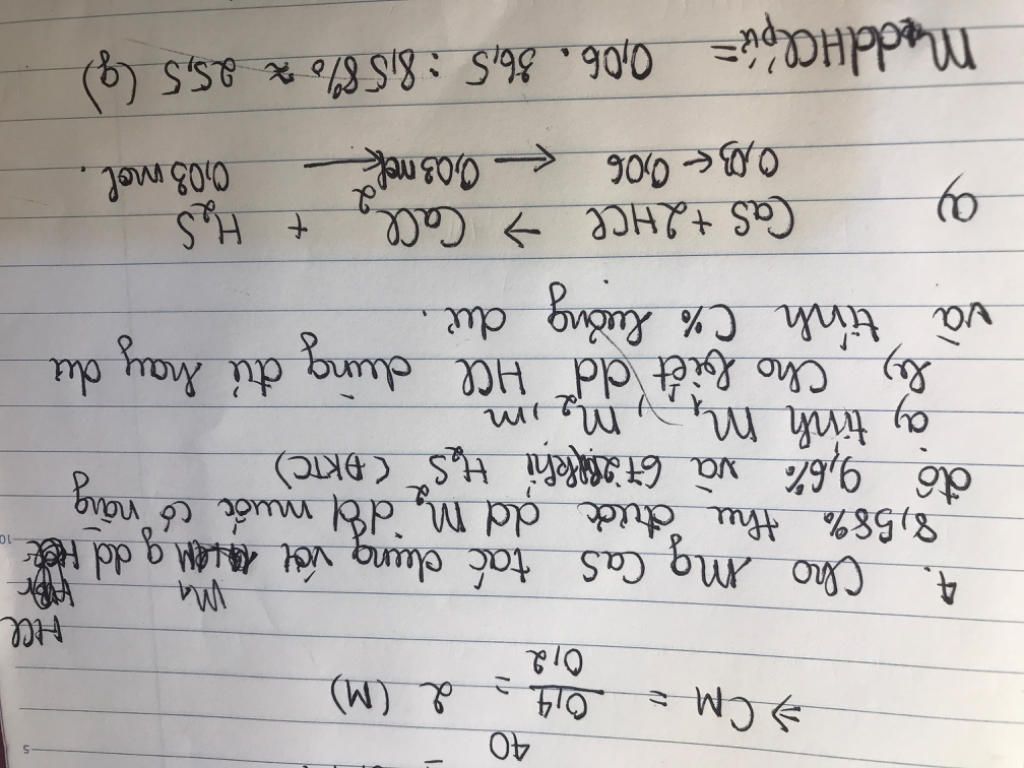 40
=> CM = 0,4 / 0,2 = 2 (M)
HCl
M₁
4. Cho Mg CaS tác dụng với g dd
8,58% thu được dd M₂ muối có nồng
độ 9,6% và 672 khí H₂S (ĐKTC)
a, tính M₁, M₂, m
b, Cho biết dd HCl dùng đủ hay dư
và tính C% lượng dư.
a) CaS + 2HCl → CaCl₂ + H₂S
0,03 ← 0,06 ← 0,03 mol ← 0,03 mol.
MddHCl pứ = 0,06 . 36,5 : 8,58% ≈ 25,5 (g)
10
5